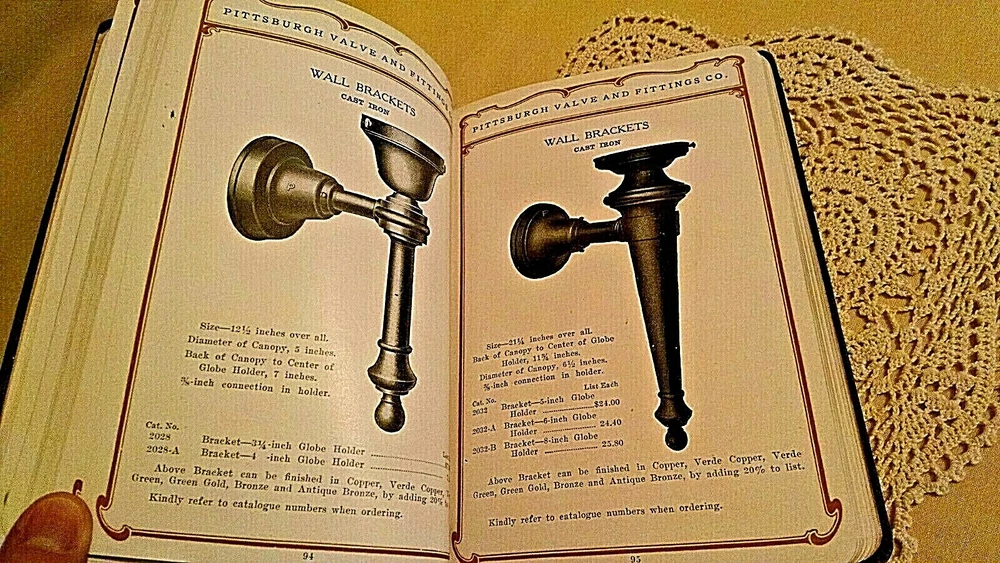 PITTSBURGH VALVE AND FITTINGS
WALL BRACKETS
CAST IRON
Size—12½ inches over all.
Diameter of Canopy, 5 inches.
Back of Canopy to Center of
Globe Holder, 7 inches.
⅜-inch connection in holder.
Cat. No.
2028 Bracket—3¼-inch Globe Holder
2028-A Bracket—4 -inch Globe Holder
Above Bracket can be finished in Copper, Verde Copper,
Green, Green Gold, Bronze and Antique Bronze, by adding 20%
Kindly refer to catalogue numbers when ordering.
94
PITTSBURGH VALVE AND FITTINGS CO.
WALL BRACKETS
CAST IRON
Size—21¼ inches over all.
Back of Canopy to Center of Globe
Holder, 11¾ inches.
Diameter of Canopy, 6½ inches.
⅜-inch connection in holder.
Cat. No. List Each
2032 Bracket—5-inch Globe
Holder $24.00
2032-A Bracket—6-inch Globe
Holder 24.40
2032-B Bracket—8-inch Globe
Holder 25.80
Above Bracket can be finished in Copper, Verde Copper, Verde
Green, Green Gold, Bronze and Antique Bronze, by adding 20% to list.
Kindly refer to catalogue numbers when ordering.
95